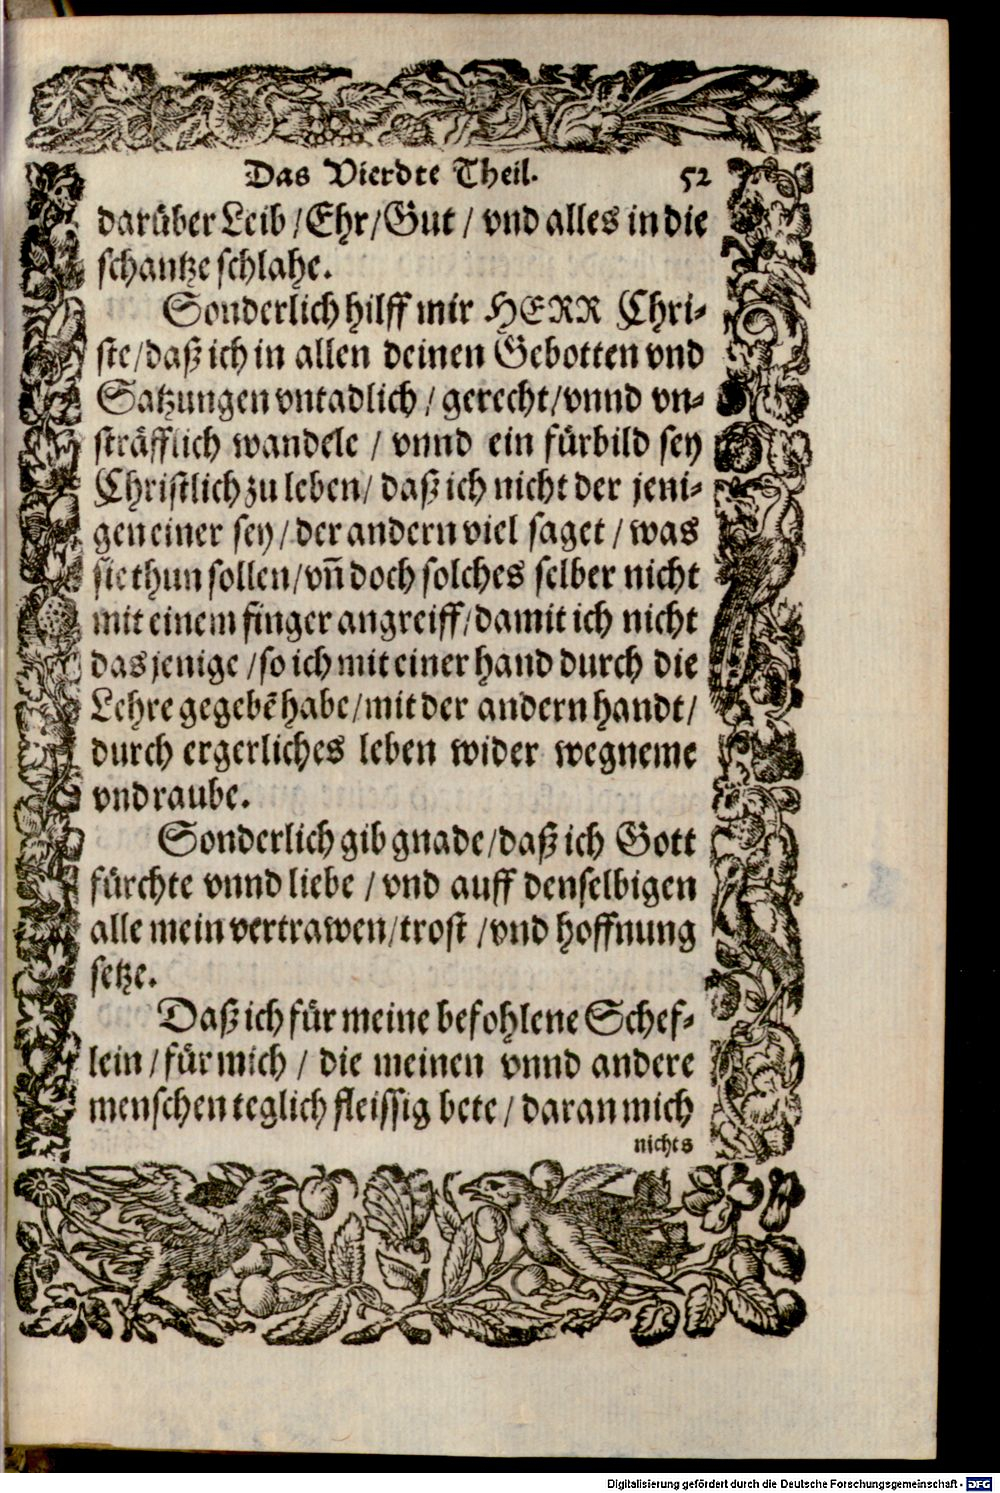 Das Vierdte Theil. 52
darüber Leib / Ehr / Gut / vnd alles in die
schantze schlahe.
Sonderlich hilff mir HERR Chri-
ste / daß ich in allen deinen Gebotten vnd
Satzungen vntadlich / gerecht / vnnd vn-
sträfflich wandele / vnnd ein fürbild sey
Christlich zu leben / daß ich nicht der jeni-
gen einer sey / der andern viel saget / was
sie thun sollen / vñ doch solches selber nicht
mit einem finger angreiff / damit ich nicht
das jenige / so ich mit einer hand durch die
Lehre gegebẽ habe / mit der andern handt /
durch ergerliches leben wider wegneme
vnd raube.
Sonderlich gib gnade / daß ich Gott
fürchte vnnd liebe / vnd auff denselbigen
alle mein vertrawen / trost / vnd hoffnung
setze.
Daß ich für meine befohlene Schef-
lein / für mich / die meinen vnnd andere
menschen teglich fleissig bete / daran mich
nichts
Digitalisierung gefördert durch die Deutsche Forschungsgemeinschaft - DFG